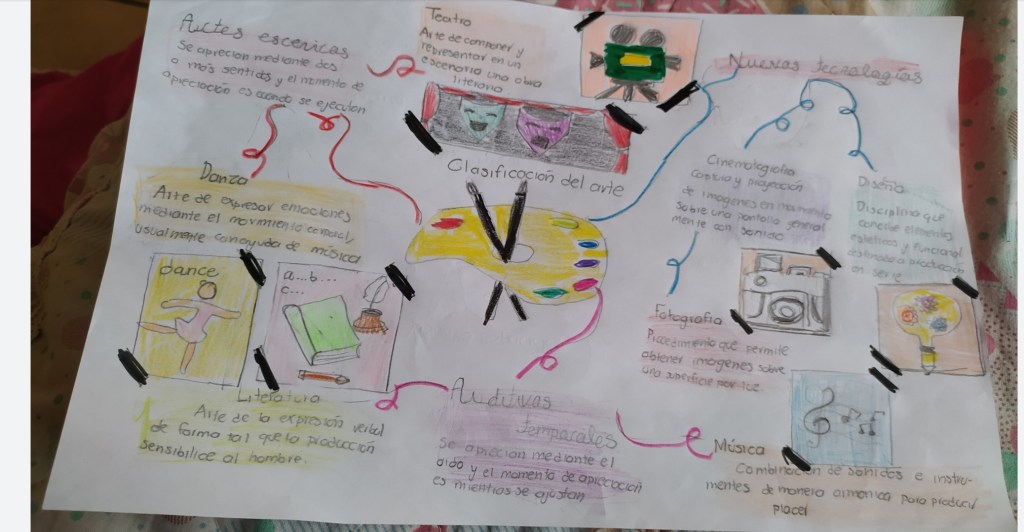 Artes escenicas
Se aprecian mediante dos
o más sentidos y el momento de
apreciación es cuando se ejecutan
Teatro
Arte de componer y
representar en un
escenario una obra
literaria
Nuevas tecnologías
Clasificación del arte
Danza
Arte de expresar emociones
mediante el movimiento corporal,
usualmente con ayuda de música
dance
a...b...
c...
Cinematografía
captura y proyección
de imagenes en movimiento
sobre una pantalla general
mente con sonido
Diseño
Disciplina que
concibe elementos
esteticos y funcional
destinada a producción
en serie
Fotografía
Procedimiento que permite
obtener imagenes sobre
una
Literatura
Arte de la expresión verbal
de forma tal que la producción
sensibilice al hombre.
Auditivas
temporales
Se aprecian mediante el
oído y el momento de apreciación
es mientras se ajustan
Música
Combinación de sonidos e instru-
mentes de manera armonica para producir
placer